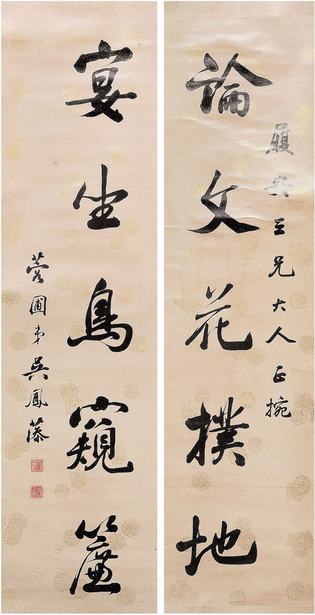 論文花撲地
履安三兄大人正腕
宴坐鳥窺簾
蓉圃弟吳鳳藻